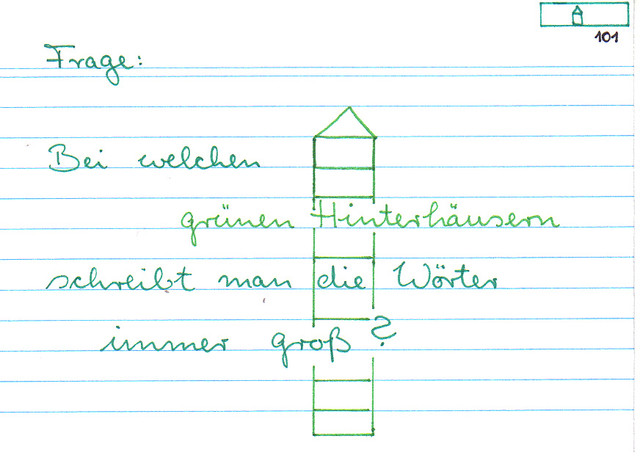 101
Frage:
Bei welchen
grünen Hinterhäusern
schreibt man die Wörter
immer groß?